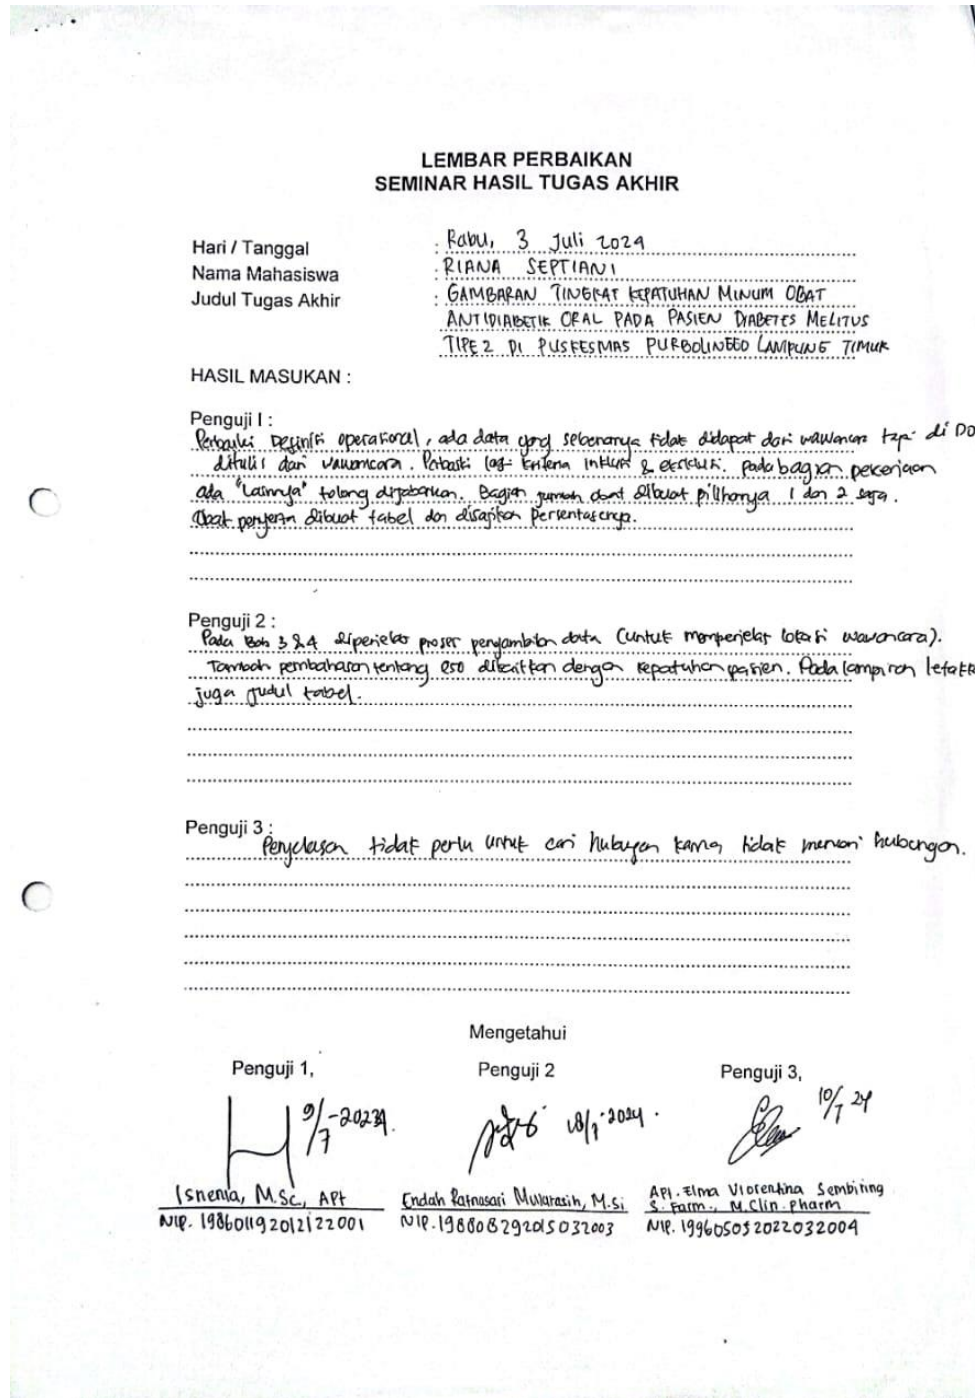 LEMBAR PERBAIKAN
SEMINAR HASIL TUGAS AKHIR
Hari / Tanggal : Rabu, 3 Juli 2024
Nama Mahasiswa : RIANA SEPTIANI
Judul Tugas Akhir : GAMBARAN TINGKAT KEPATUHAN MINUM OBAT
ANTIDIABETIK ORAL PADA PASIEN DIABETES MELITUS
TIPE 2 DI PUSKESMAS PURBOLINGGO LAMPUNG TIMUR
HASIL MASUKAN :
Penguji I :
Perbaiki Definisi operasional, ada data yang sebenarnya tidak didapat dari wawancara tapi di DO
ditulis dari wawancara. Perbaiki lagi kriteria inklusi & eksklusi. pada bagian pekerjaan
ada "Lainnya" tolong dijabarkan. Bagian jumlah obat dibuat pilihannya 1 dan 2 saja.
Obat penyerta dibuat tabel dan disajikan persentasenya.
Penguji 2 :
Pada Bab 3 & 4 diperjelas proses pengambilan data (untuk memperjelas lokasi wawancara).
Tambah pembahasan tentang ESO dikaitkan dengan kepatuhan pasien. Pada lampiran
juga judul tabel.
Penguji 3 :
Penjelasan tidak perlu untuk cari hubungan karna tidak mencari hubungan.
Mengetahui
Penguji 1, Penguji 2 Penguji 3,
9/7-2024. 18/7-2024. 10/7 24
Isnenia, M.Sc., Apt Endah Ratnasari Mulatasih, M.Si Apt. Elma Viorentina Sembiring
S. Farm., M.Clin.Pharm
NIP. 198601192012122001 NIP. 198808292015032003 NIP. 199605052022032004